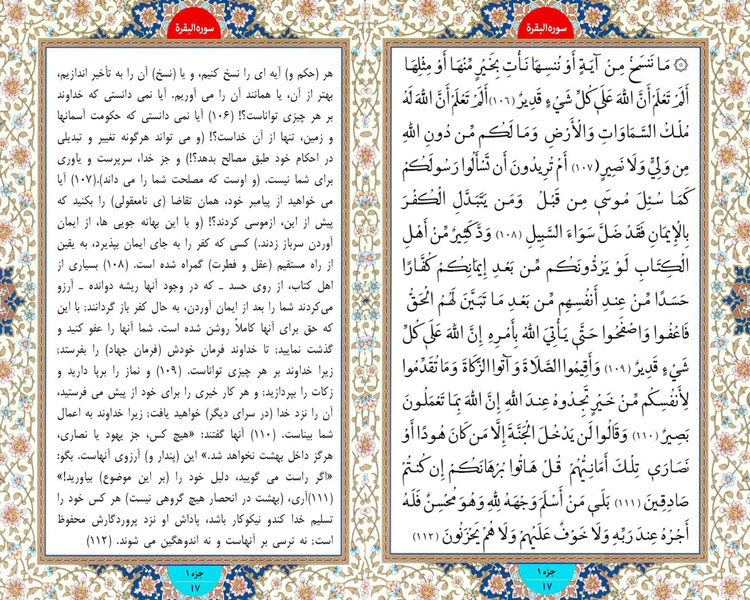 سورة البقرة
۞ مَا نَنسَخْ مِنْ آيَةٍ أَوْ نُنسِهَا نَأْتِ بِخَيْرٍ مِّنْهَا أَوْ مِثْلِهَا
أَلَمْ تَعْلَمْ أَنَّ اللَّهَ عَلَىٰ كُلِّ شَيْءٍ قَدِيرٌ (۱۰۶) أَلَمْ تَعْلَمْ أَنَّ اللَّهَ لَهُ
مُلْكُ السَّمَاوَاتِ وَالْأَرْضِ وَمَا لَكُم مِّن دُونِ اللَّهِ
مِن وَلِيٍّ وَلَا نَصِيرٍ (۱۰۷) أَمْ تُرِيدُونَ أَن تَسْأَلُوا رَسُولَكُمْ
كَمَا سُئِلَ مُوسَىٰ مِن قَبْلُ وَمَن يَتَبَدَّلِ الْكُفْرَ
بِالْإِيمَانِ فَقَدْ ضَلَّ سَوَاءَ السَّبِيلِ (۱۰۸) وَدَّ كَثِيرٌ مِّنْ أَهْلِ
الْكِتَابِ لَوْ يَرُدُّونَكُم مِّن بَعْدِ إِيمَانِكُمْ كُفَّارًا
حَسَدًا مِّنْ عِندِ أَنفُسِهِم مِّن بَعْدِ مَا تَبَيَّنَ لَهُمُ الْحَقُّ
فَاعْفُوا وَاصْفَحُوا حَتَّىٰ يَأْتِيَ اللَّهُ بِأَمْرِهِ إِنَّ اللَّهَ عَلَىٰ كُلِّ
شَيْءٍ قَدِيرٌ (۱۰۹) وَأَقِيمُوا الصَّلَاةَ وَآتُوا الزَّكَاةَ وَمَا تُقَدِّمُوا
لِأَنفُسِكُم مِّنْ خَيْرٍ تَجِدُوهُ عِندَ اللَّهِ إِنَّ اللَّهَ بِمَا تَعْمَلُونَ
بَصِيرٌ (۱۱۰) وَقَالُوا لَن يَدْخُلَ الْجَنَّةَ إِلَّا مَن كَانَ هُودًا أَوْ
نَصَارَىٰ تِلْكَ أَمَانِيُّهُمْ قُلْ هَاتُوا بُرْهَانَكُمْ إِن كُنتُمْ
صَادِقِينَ (۱۱۱) بَلَىٰ مَنْ أَسْلَمَ وَجْهَهُ لِلَّهِ وَهُوَ مُحْسِنٌ فَلَهُ
أَجْرُهُ عِندَ رَبِّهِ وَلَا خَوْفٌ عَلَيْهِمْ وَلَا هُمْ يَحْزَنُونَ (۱۱۲)
جزء ۱
۱۷
سورة البقرة
هر (حکم و) آیه ای را نسخ کنیم، و یا (نسخ) آن را به تأخیر اندازیم،
بهتر از آن، یا همانند آن را می آوریم. آیا نمی دانستی که خداوند
بر هر چیزی تواناست؟! (۱۰۶) آیا نمی دانستی که حکومت آسمانها
و زمین، تنها از آن خداست؟! (و می تواند هرگونه تغییر و تبدیلی
در احکام خود طبق مصالح بدهد؟!) و جز خدا، سرپرست و یاوری
برای شما نیست. (و اوست که مصلحت شما را می داند).(۱۰۷) آیا
می خواهید از پیامبر خود، همان تقاضا (ی نامعقولی) را بکنید که
پیش از این، ازموسی کردند؟! (و با این بهانه جویی ها، از ایمان
آوردن سرباز زدند.) کسی که کفر را به جای ایمان بپذیرد، به یقین
از راه مستقیم (عقل و فطرت) گمراه شده است. (۱۰۸) بسیاری از
اهل کتاب، از روی حسد ـ که در وجود آنها ریشه دوانده ـ آرزو
می‌کردند شما را بعد از ایمان آوردن، به حال کفر باز گردانند؛ با این
که حق برای آنها کاملاً روشن شده است. شما آنها را عفو کنید و
گذشت نمایید؛ تا خداوند فرمان خودش (فرمان جهاد) را بفرستد؛
زیرا خداوند بر هر چیزی تواناست. (۱۰۹) و نماز را برپا دارید و
زکات را بپردازید؛ و هر کار خیری را برای خود از پیش می فرستید،
آن را نزد خدا (در سرای دیگر) خواهید یافت؛ زیرا خداوند به اعمال
شما بیناست. (۱۱۰) آنها گفتند: «هیچ کس، جز یهود یا نصاری،
هرگز داخل بهشت نخواهد شد.» این (پندار و) آرزوی آنهاست. بگو:
«اگر راست می گویید، دلیل خود را (بر این موضوع) بیاورید!»
(۱۱۱)آری، (بهشت در انحصار هیچ گروهی نیست) هر کس خود را
تسلیم خدا کندو نیکوکار باشد، پاداش او نزد پروردگارش محفوظ
است؛ نه ترسی بر آنهاست و نه اندوهگین می شوند. (۱۱۲)
جزء ۱
۱۷